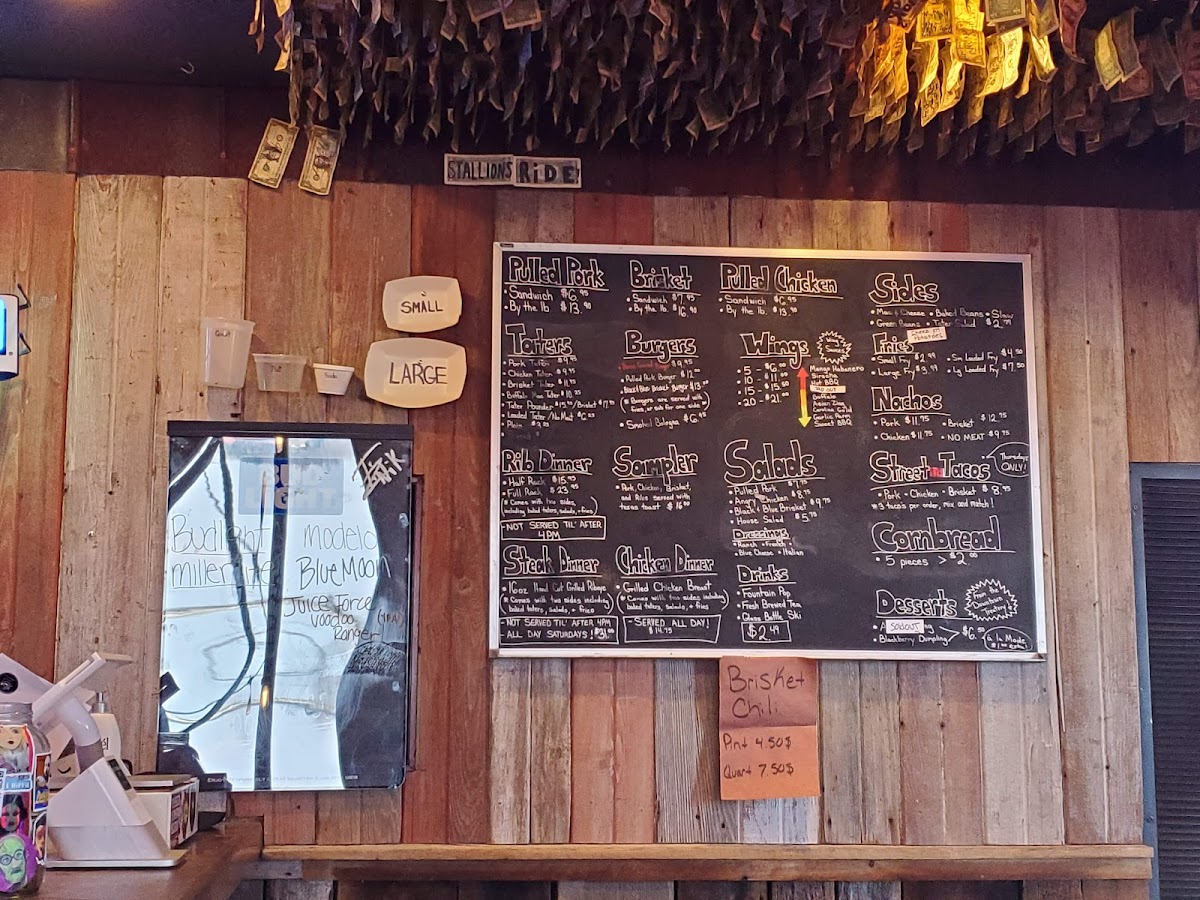 STALLIONS RIDE
SMALL
LARGE
Pulled Pork
• Sandwich $6.95
• By the lb $13.90
Brisket
• Sandwich $7.95
• By the lb. $16.90
Pulled Chicken
• Sandwich $6.95
• By the lb. $13.90
Sides
• Mac & Cheese • Baked Beans • Slaw
• Green Beans • Tater Salad
Taters
• Pork Tater $9.95
• Chicken Tater $9.95
• Brisket Tater $11.95
• Tater Pounder $15.95/Brisket $17.95
• Loaded Tater/No Meat
• Plain
Burgers
• Pulled Pork Burger $12
• Black & Blue Brisket Burger $13.00
(* Burgers are served with
fries, or sub for one side *)
• Smoked Bologna
Wings
• 5 -
• 10 -
• 15 -
• 20 - $21.00
Wing Sauces
Mango Habanero
Sriracha
Hot BBQ
Buffalo
Asian Zing
Carolina Gold
Garlic Parm
Sweet BBQ
Fries
• Small Fry $2.99
• Sm Loaded Fry $4.50
• Large Fry $3.99
• Lg Loaded Fry $7.50
Nachos
• Pork $11.75
• Brisket $12.75
• Chicken $11.75
• NO MEAT $9.75
Rib Dinner
• Half Rack $15.95
• Full Rack $23.95
(* Comes with two sides,
including baked taters, salads, + fries)
-NOT SERVED TIL' AFTER
4PM
Sampler
Pork, Chicken, Brisket,
and Ribs served with
texas toast
Salads
• Pulled Pork
• Angry Chicken $8.75
• Black & Blue Brisket $9.75
• House Salad $5.75
Dressings
• Ranch • French •
• Blue Cheese • Italian
Street Tacos
Thursdays
ONLY!
• Pork - Chicken - Brisket $8.95
* 3 tacos per order, mix and match!
Cornbread
• 5 pieces > $2.00
Steak Dinner
• 16oz Hand Cut Grilled Ribeye
(* Comes with two sides including
baked taters, salads, + fries
-NOT SERVED TIL' AFTER 4PM
ALL DAY SATURDAYS!
Chicken Dinner
• Grilled Chicken Breast
(* Comes with two sides including
baked taters, salads, + fries
-SERVED ALL DAY!
$14.75
Drinks
• Fountain Pop
• Fresh Brewed Tea
• Glass Bottle Ski
$2.49
Desserts
From the
Downtown
Treatery
SOLD OUT
• Blackberry Dumpling
á la Mode
Bud Light
modelo
miller lite
Blue Moon
Juice Force
(IPA)
Voodoo
Ranger
Brisket
Chili
Pint 4.50$
Quart 7.50$